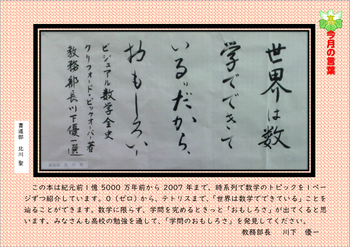 今月の言葉
世界は数
学でできて
いる。だから、
おもしろい。
ビジュアル数学全史
クリフォード・ピックオーバー著
教務部長川下優一選
書道部　北川 聖
この本は紀元前1億5000万年前から2007年まで、時系列で数学のトピックを1ペー
ジずつ紹介しています。0（ゼロ）から、テトリスまで、「世界は数学でできている」ことを
辿ることができます。数学に限らず、学問を究めるときっと「おもしろさ」が出てくると思
います。みなさんも高校の勉強を通して、「学問のおもしろさ」を発見してください。
教務部長　川下　優一